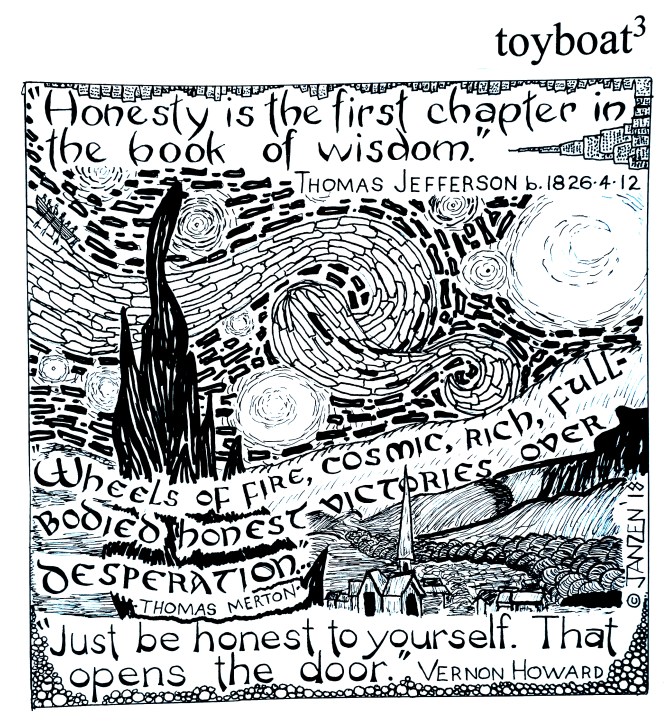 toyboat³
"Honesty is the first chapter in
the book of wisdom."
THOMAS JEFFERSON b.1826·4·12
"Wheels of fire, cosmic, rich, full-
bodied honest victories over
desperation..."
-THOMAS MERTON
© JANZEN '18
"Just be honest to yourself. That
opens the door." VERNON HOWARD